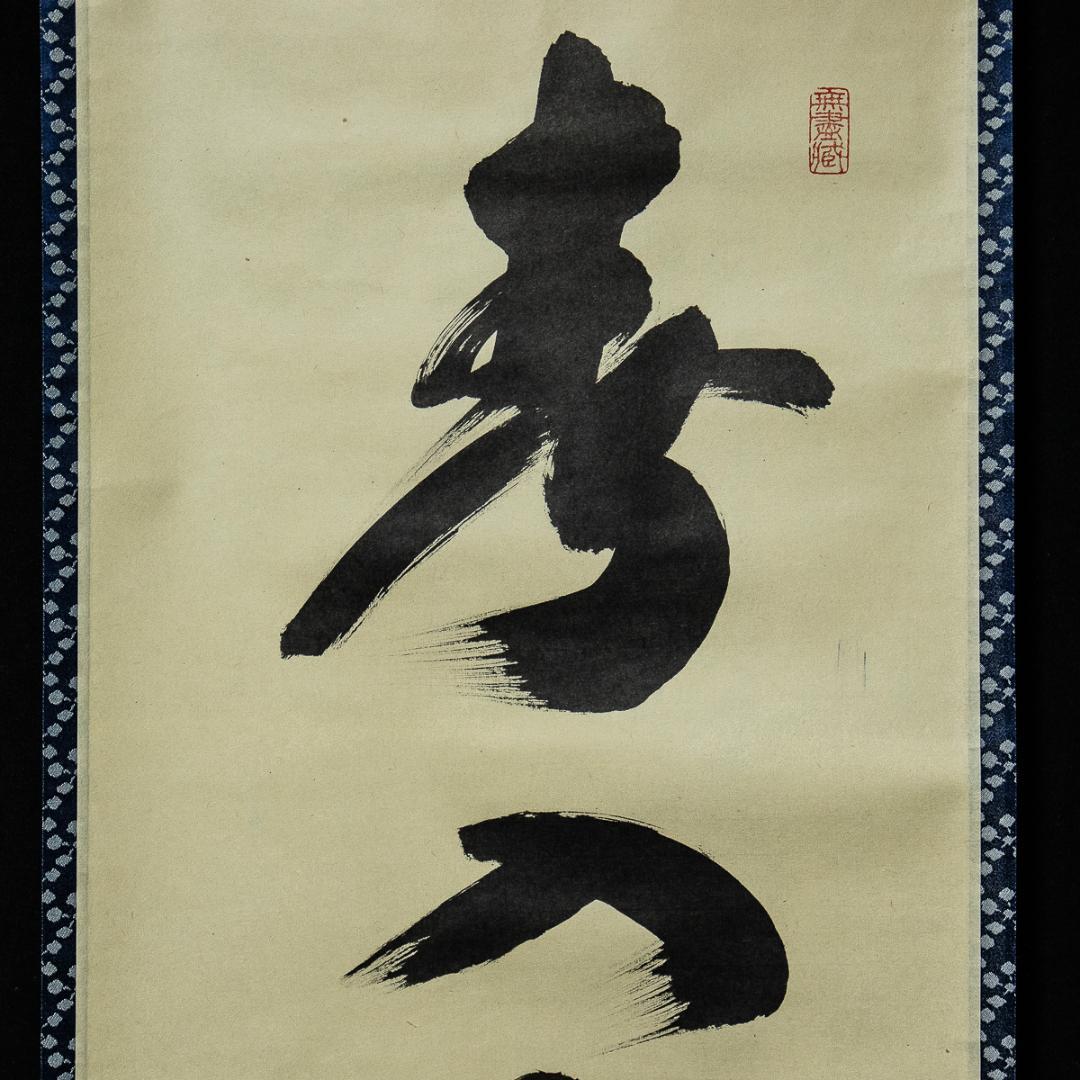 無盡藏
春入